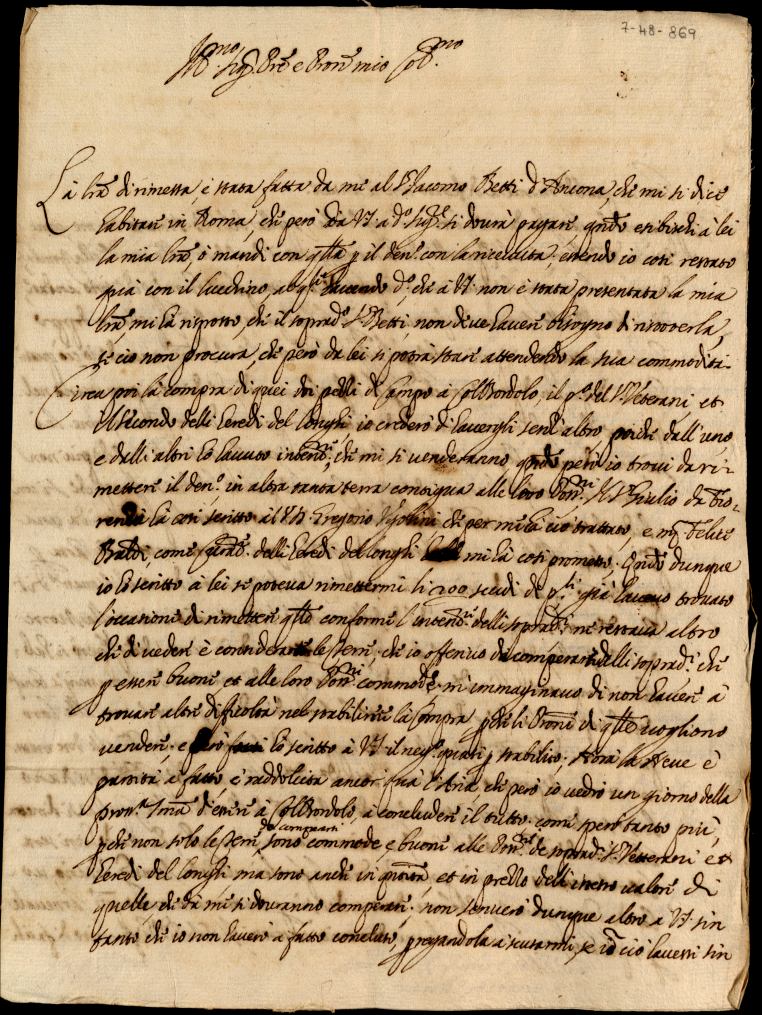 7-48-869
Ill.mo Sig.r Pre e Pron mio Col.mo
La lra di rimessa, è stata fatta da me al S.r Iacomo Betti d'Ancona, che mi si dice
habitare in Roma, che però da VS. a d.o Sig.re si dovrà pagare, quando esibischi à lei
la mia lra, ò mandi con q.lla p il den.o con la ricevuta, essendo io così restato
già con il havendo d.o, che à VS. non è stata presentata la mia
lra, mi hà risposto, che il soprad.o S.r Betti, non deve havere bisogno di riscoverla,
se ciò non procura, che però da lei si potrà stare attendendo la sua commodità.
Circa poi la compra di quei doi pezzi di Campo à Colbordolo, il p.o del S.r Veterani, et
il secondo delli Heredi del Longhi, io crederò d'havergli senz'altro, poiche dall'uno,
e dalli altri hò havuto intent.ne, che mi si venderanno, quando però io trovi da ri-
mettere il den.o in altra tanta terra contigua alle loro Poss.ni, il S.r Giulio da Fio-
renza hà così scritto al S.r Gregorio Ugolini che per me hà ciò trattato, e m.r Felice
Baldi, come Curat.e delli Heredi del Longhi mi hà così promesso. Quando dunque
io hò scritto à lei se poteva rimettermi li 200 scudi de p.li già havevo trovato
l'occasione di rimettere q.llo conforme l'intent.ne delli soprad.i, ne restava altro
che di vedere è considerare le terre, che io offerivo da comperarsi delli soprad.i che
p essere buone, et alle loro Poss.ni commode, m'immaginavo di non havere à
trovare altre difficoltà nel stabilire la Compra, p che li Proni di q.llo vogliono
vendere, e però hò scritto à VS. il neg.o quasi p stabilito, hora la Neve è
partita à fatto, è raddolcita ancor qua l'Aria, che però io vedrò un giorno della
pross.a 7mna d'essere à Colbordolo, à concludere il tutto, come spero tanto più,
p che non solo le terre da comprarsi sono commode, e buone alle Poss.ni de soprad.i S.r Vetterani è et
Heredi del Longhi ma sono anche in quantità, et in prezzo dell'istesso valore di
quelle, che da me si dovranno comperare; non scriverò dunque altro a VS. sin
tanto che io non haverò a fatto concluso, pregandola à scusarmi, se in ciò havessi sin